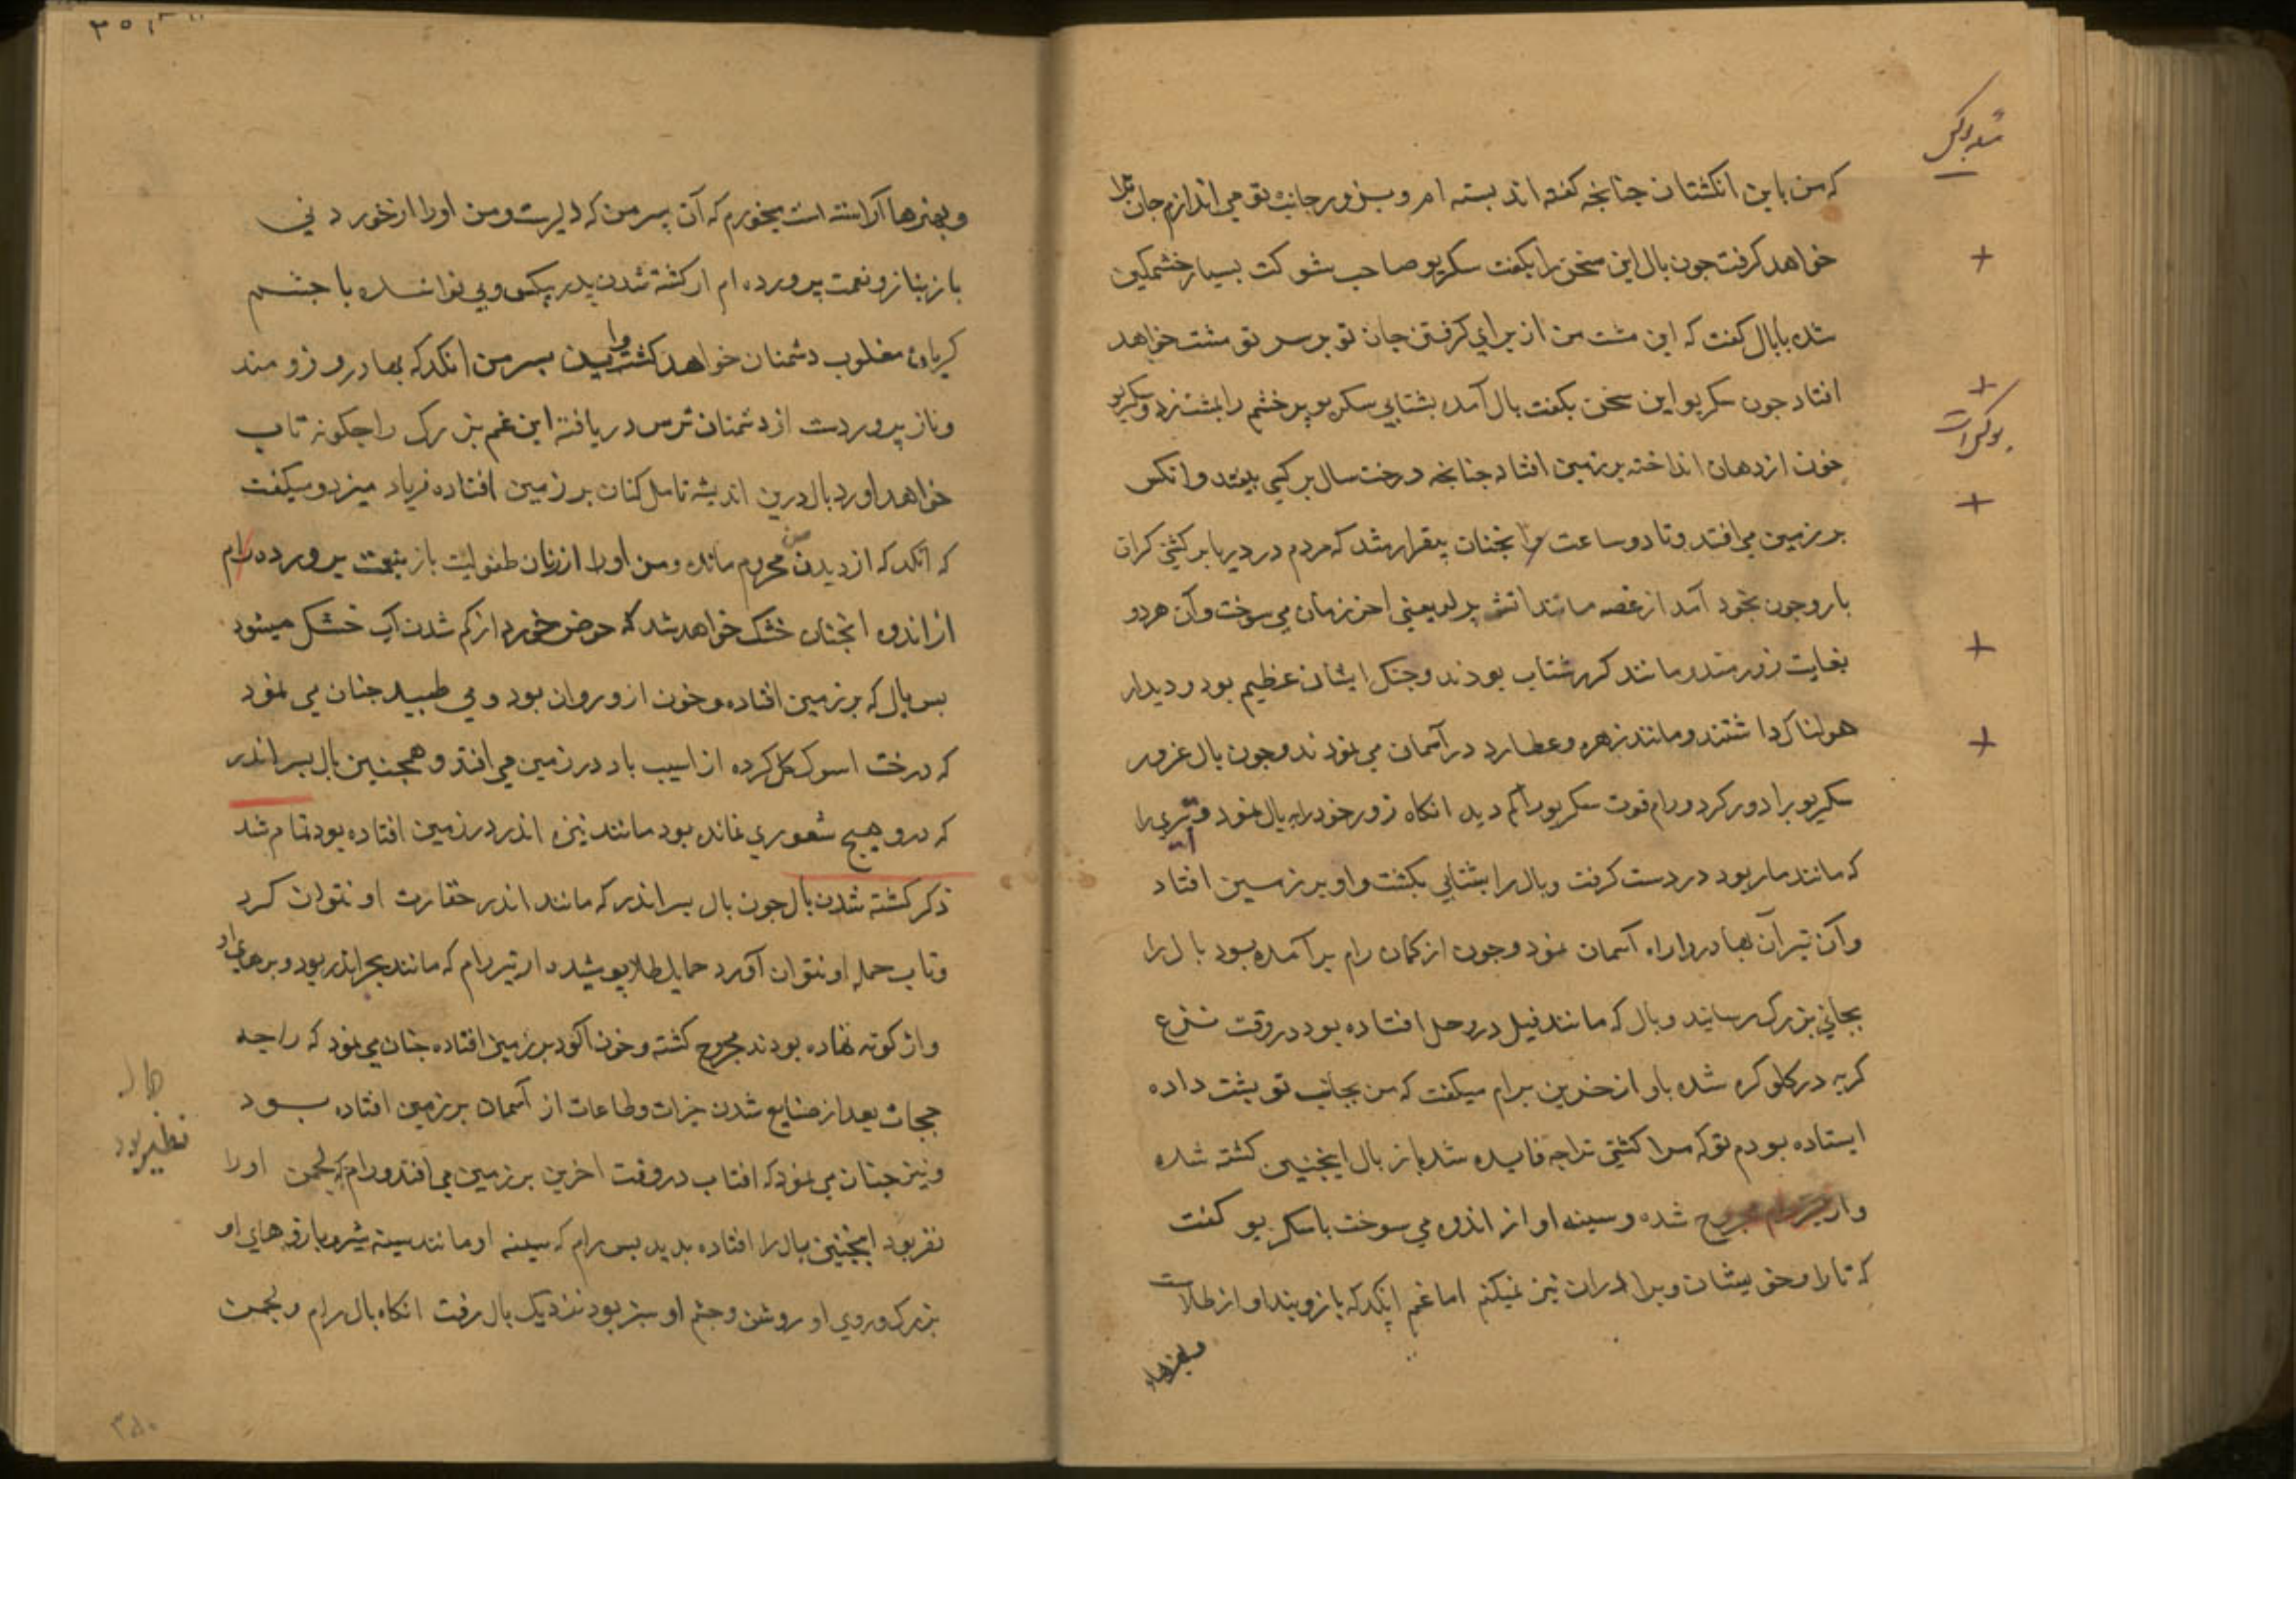 که من باین انکشتان جنانجه کفته اند بسته ام و بزور جانب تو می اندازم جان ترا
خواهد کرفت جون بال این سخن را بکفت سکریو صاحب شوکت بسیار خشمکین
شده بابال کفت که این مشت من از برای کرفتن جان تو بر سر تو مشت خواهد
افتاد جون سکریو این سخن بکفت بال آمده بشتابی سکریو پر خشم را بمشت زد و سکریو
خون از دهان انداخته بر زمین افتاد جنانجه درخت سال بر کسی بیفتد و انکس
بر زمین می افتد و تا دو ساعت انجنان بیقرار شد که مردم در دریا بر کشتی کران
بار و جون بخود آمد از غصه مانند اتش یعنی اخر زمان می سوخت و آن هر دو
بغایت زورمند و مانند کرر شتاب بودند و جنک ایشان عظیم بود و دیدار
هولناک داشتند و مانند زهره و عطارد در آسمان می نمودند و جون بال غرور
سکریو را دور کرد و رام قوت سکریو را کم دید انکاه زور خود را به بال نمود و تیری را
که مانند مار بود در دست کرفت و بال را بشتابی بکشت و او بر زمین افتاد
و آن تیر آن بهادر را راه آسمان نمود و جون از کمان رام بر آمده بود بال را
بجائی بزرک رسانید و بال که مانند فیل در وحل افتاده بود در وقت نزع
کریه در کلو کره شده باواز حزین برام میکفت که من بجانب تو پشت داده
ایستاده بودم تو که مرا کشتی ترا جه فایده شد باز بال اینجنین کشته شده
و از تیر رام مجروح شده و سینه او از اندوه می سوخت با سکریو کفت
که تارا و خویشان و برادران نیز نمیکنم اما غم انکد که بازوبند او از طلاست
و بهنرها
و بهنرها آراسته است میخورم که آن پسر من که دلیرست و من او را از خوردنی
باز بناز و نعمت پرورده ام از کشته شدن پدر بیکس و بی نوا شده با جشم
کریان مغلوب دشمنان خواهد کشت و این پسر من انکد که بهادر و زورمند
و ناز پروردست از دشمنان ترس دریافته این غم بزرک را جکونه تاب
خواهد اورد بال درین اندیشه تامل کنان بر زمین افتاده فریاد میزد و میکفت
که انکد که از دیدن من محروم مانده و من او را از زمان طفولیت باز بنعمت پرورده ام
از اندوه انجنان خشک خواهد شد که حوض خورد از کم شدن آب خشک میشود
پس بال که بر زمین افتاده و خون ازو روان بود و می طپید جنان می نمود
که درخت اسوک کل کرده از اسیب باد در زمین می افتد و همجنین بال پسر اندر
که درو هیچ شعوری نمانده بود مانند نیزه اندر در زمین افتاده بود تمام شد
ذکر کشته شدن بال جون بال پسر اندر که مانند اندر حقارت او نتوان کرد
و تاب حمله او نتوان آورد حمایل طلا پوشیده از تیر رام که مانند بجر اندر بود و بر هر دو
نهاده بودند مجروح کشته و خون الود بر زمین افتاده جنان می نمود که راجه
ججات بعد از ضایع شدن خیرات و طاعات از آسمان بر زمین افتاده بود
و نیز جنان می نمود که افتاب در وقت اخرین بر زمین می افتد و رام که لجمن او را
نفر بود اینجنین بال را افتاده بدید پس رام که سینه او مانند سینه شیر و بازوهای او
بزرک و روی او روشن و جشم او سبز بود نزدیک بال رفت انکاه بال رام و لجمن